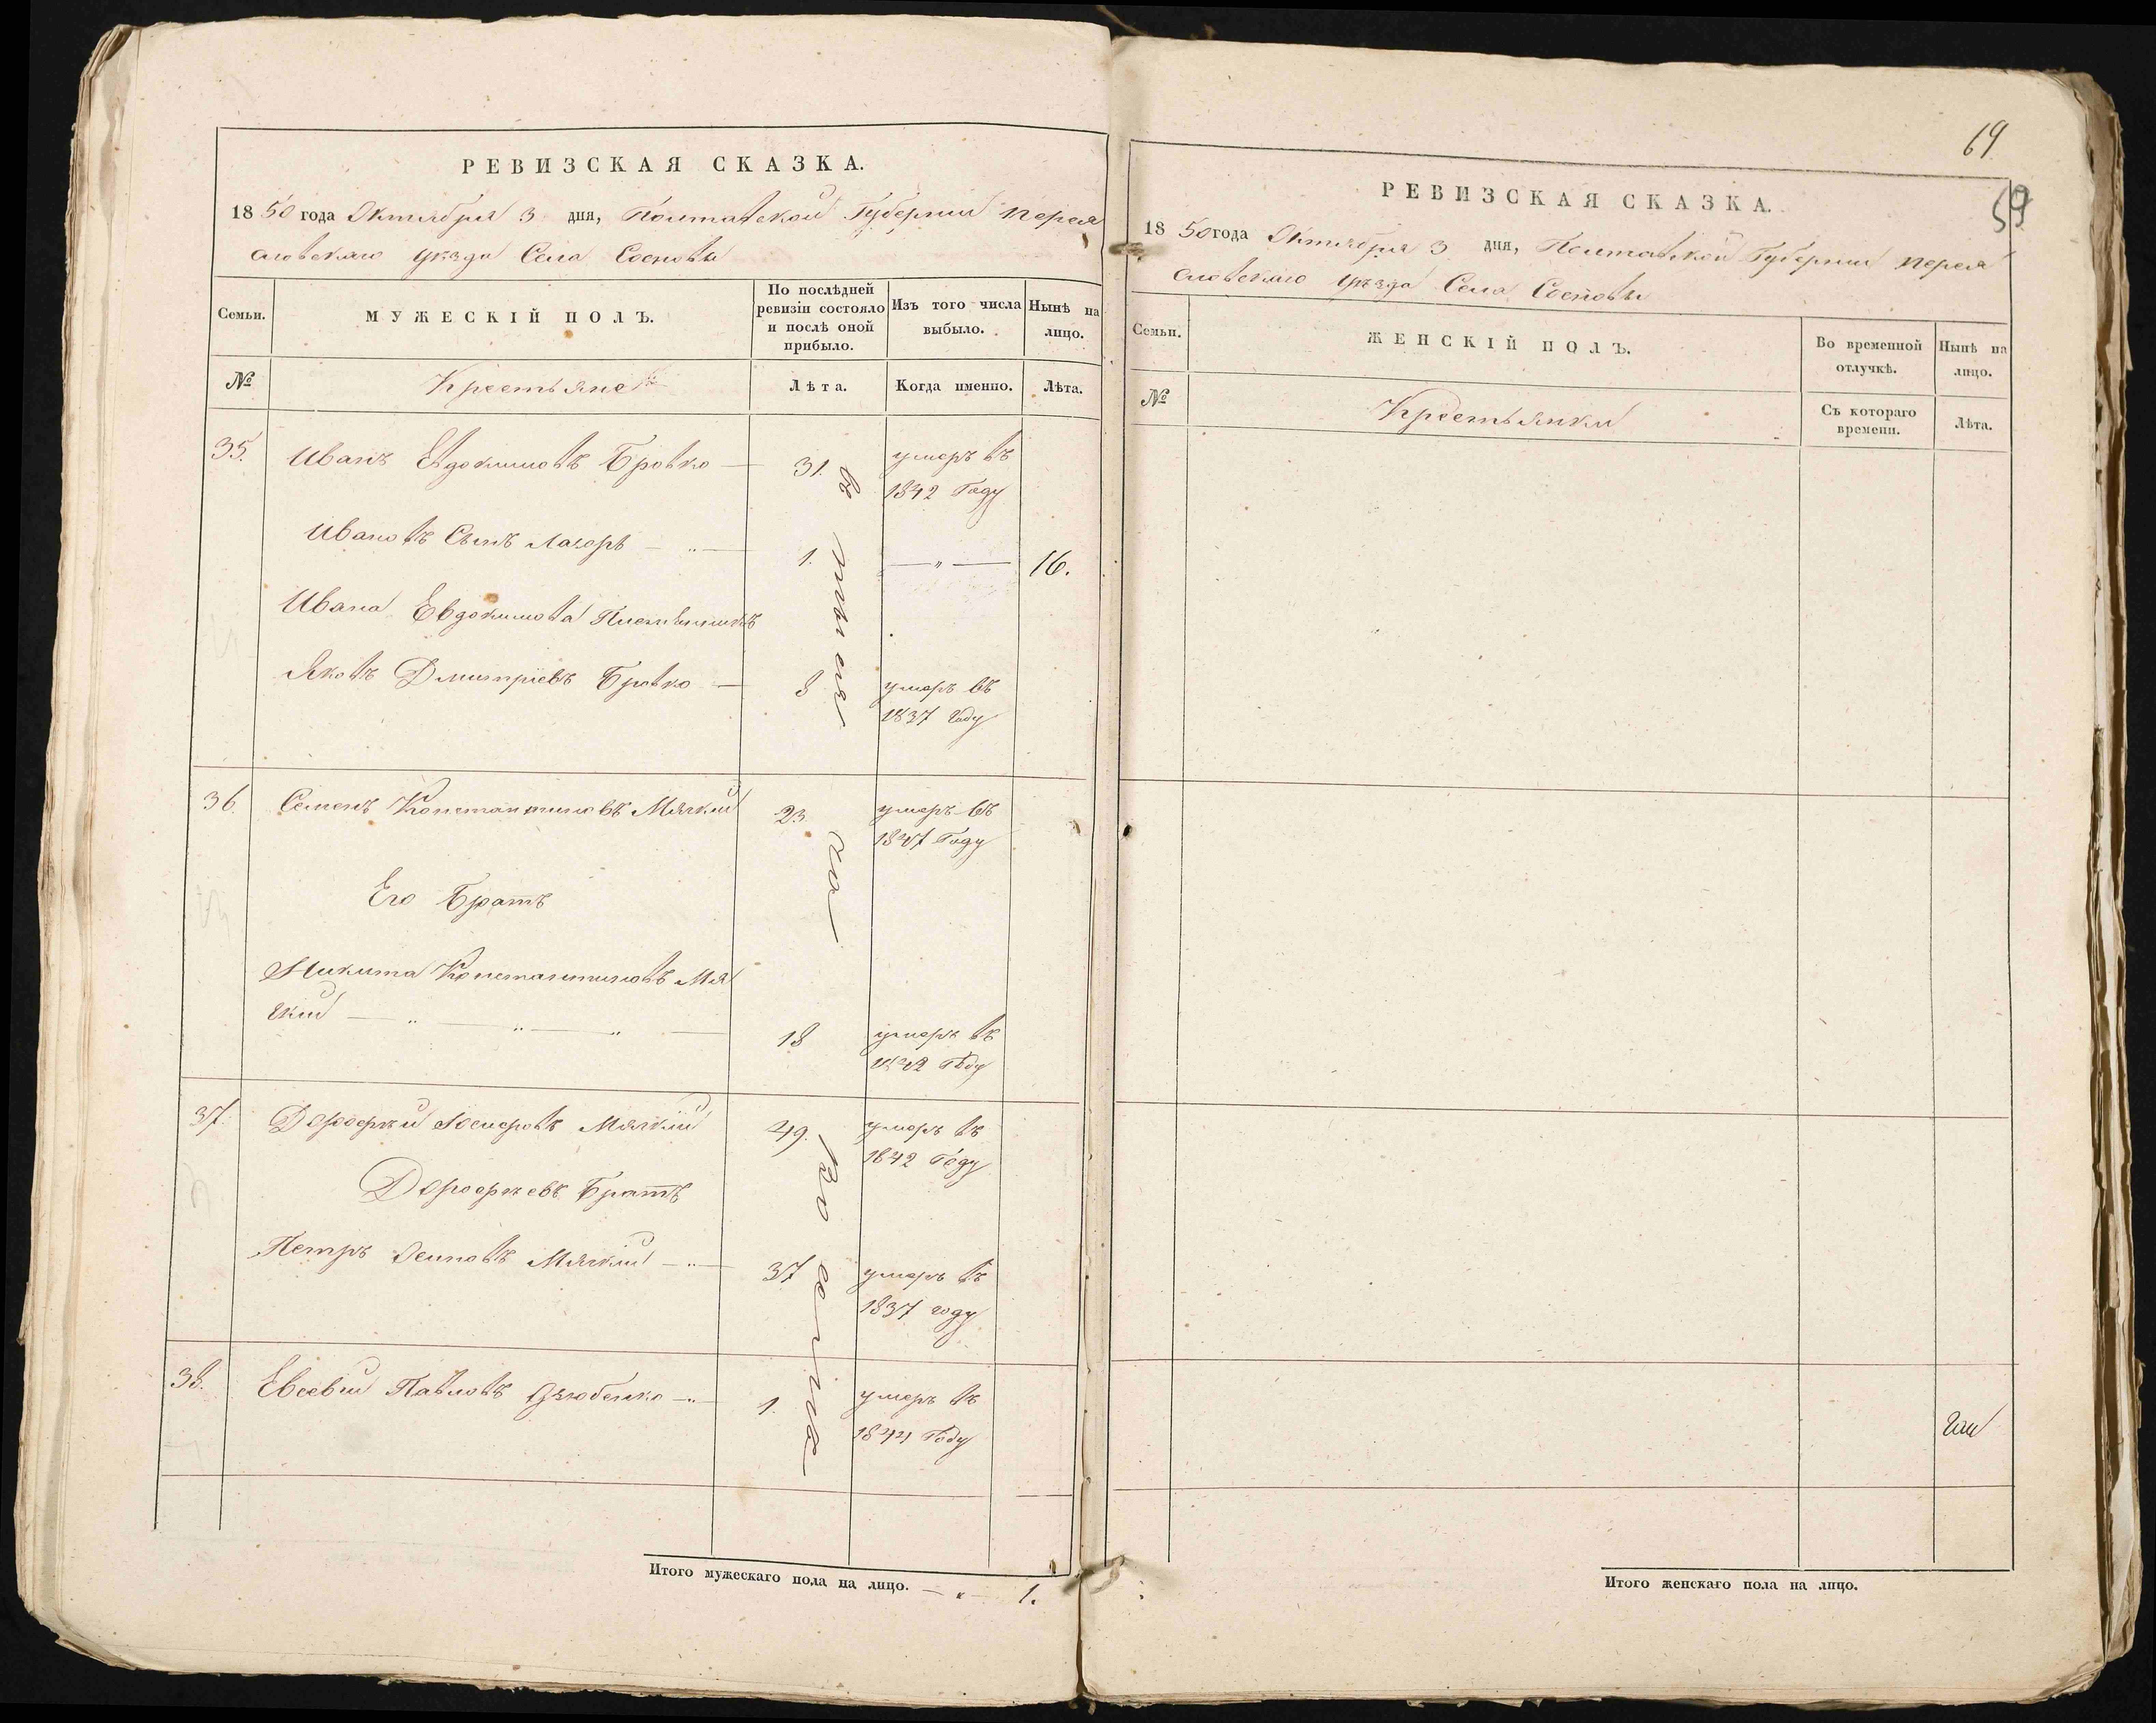 РЕВИЗСКАЯ СКАЗКА.
1850 года Октября 3 дня, Полтавской Губернии Перея
славскаго уезда Села Сосновы
Семьи.
МУЖЕСКІЙ ПОЛЪ.
По послѣдней
ревизіи состояло
и послѣ оной
прибыло.
Изъ того числа
выбыло.
Нынѣ на
лицо.
№
Крестьяне
Лѣта.
Когда именно.
Лѣта.
35. Иванъ Евдокимовъ Бровко — 31. умеръ въ
1842 Году
Ивановъ Сынъ Лазорь — „ — 1. — „ — 16.
Ивана Евдокимова Племянникъ
Яковъ Дмитріевъ Бровко — 8 умеръ въ
1837 Году
36. Семенъ Константиновъ Мягкий 23 умеръ въ
1847 Году
Его Братъ
Никита Константиновъ Мя
гкий — „ — „ — „ — 18 умеръ въ
1842 Году
37. Дорофѣй Мягкий 49. умеръ въ
1842 Году
Дорофѣевъ Братъ
Петръ Осиповъ Мягкий — „ — 37 умеръ въ
1837 году
38. Евсевий Павловъ Дзюбенко — „ — 1. умеръ въ
1844 Году
Итого мужескаго пола на лицо. — „ — 1.
69
59
РЕВИЗСКАЯ СКАЗКА.
1850 года Октября 3 дня, Полтавской Губернии Перея
славскаго уезда Села Сосновы
Семьи.
ЖЕНСКІЙ ПОЛЪ.
Во временной
отлучкѣ.
Нынѣ на
лицо.
№
Крестьянки
Съ котораго
времени.
Лѣта.
Итого женскаго пола на лицо.